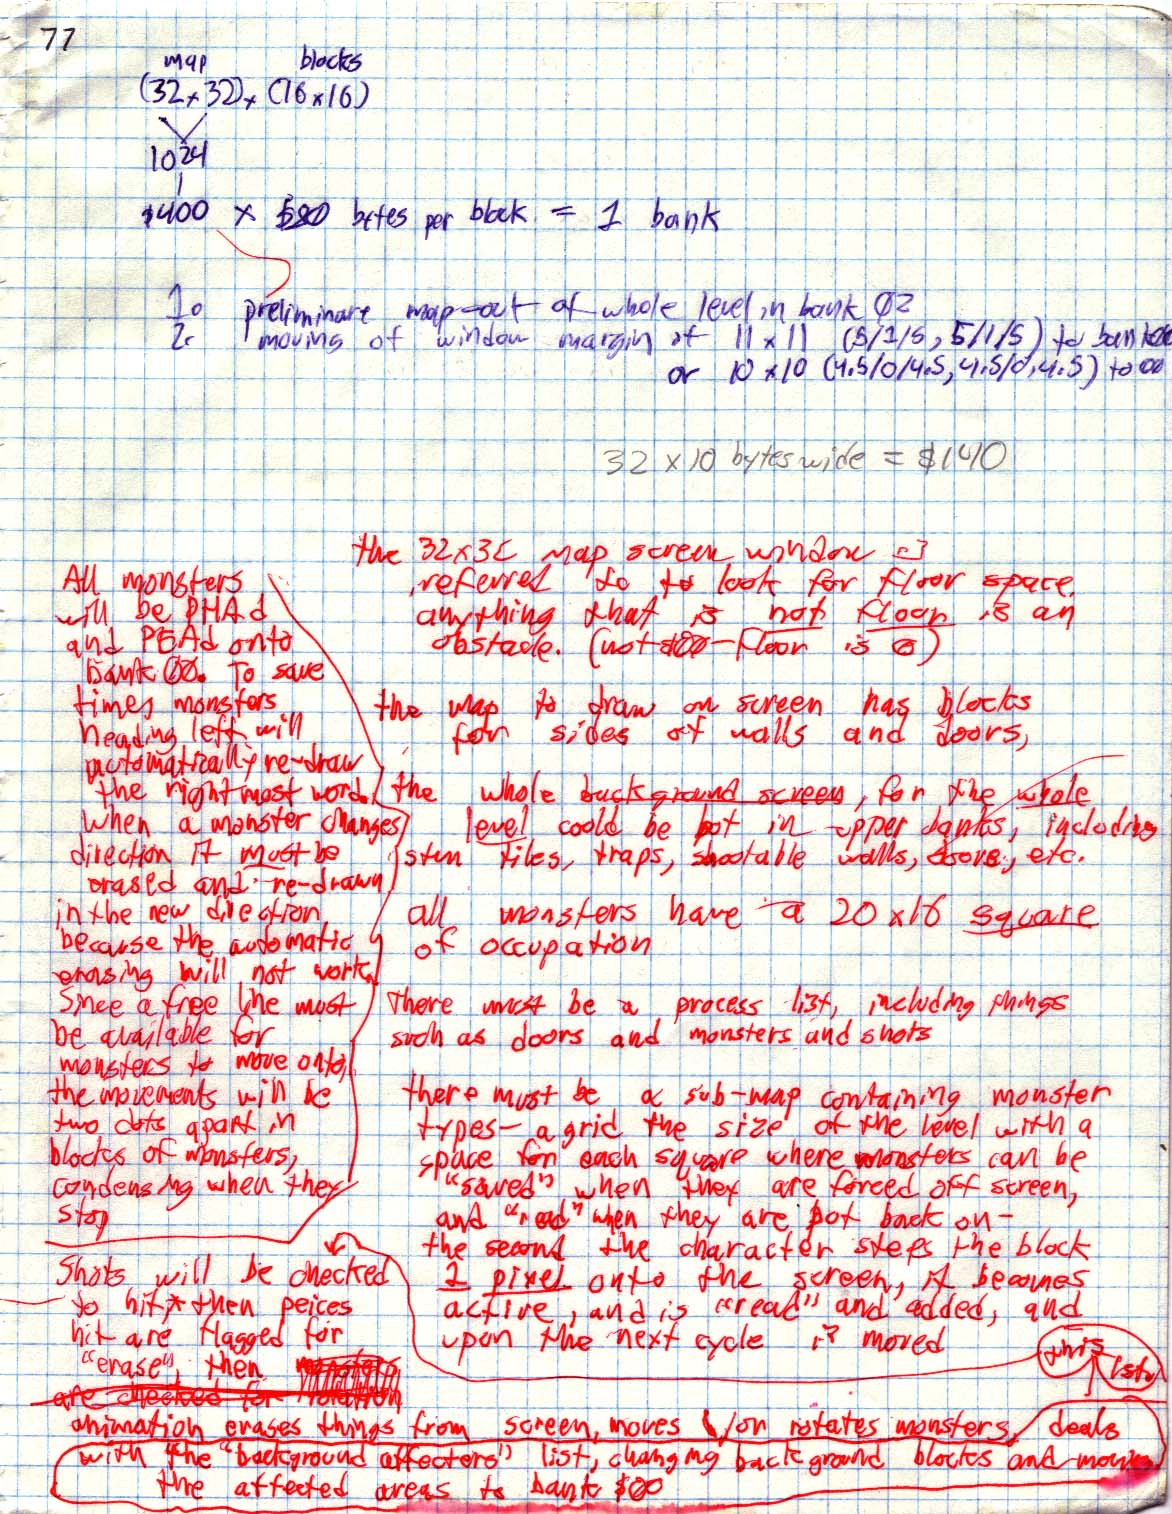 77
map blocks
(32 x 32) x (16 x 16)
1024
$400 x bytes per block = 1 bank
1. preliminare map-out of whole level in bank 02
2. moving of window margin of 11 x 11 (5/1/5, 5/1/5) to bank
or 10 x 10 (4.5/0/4.5, 4.5/0/4.5) to 00
32 x 10 bytes wide = $140
the 32x32 map screen window is
referred to to look for floor space.
anything that is not floor is an
obstacle. (not floor is 0)
the map to draw on screen has blocks
for sides of walls and doors,
the whole background screen, for the whole
level could be put in upper banks, including
stun tiles, traps, shootable walls, doors, etc.
all monsters have a 20 x 16 square
of occupation
there must be a process list, including things
such as doors and monsters and shots
there must be a sub-map containing monster
types- a grid the size of the level with a
space for each square where monsters can be
"saved" when they are forced off screen,
and "read" when they are put back on-
the second the character steps the block
1 pixel onto the screen, it becomes
active, and is "read" and added, and
upon the next cycle is moved
All monsters
will be PHAd
and PEAd onto
bank 00. To save
times monsters
heading left will
automatically re-draw
the rightmost word.
When a monster changes
direction it must be
erased and re-drawn
in the new direction,
because the automatic
erasing will not work.
Since a free line must
be available for
monsters to move onto,
the movements will be
two dots apart in
blocks of monsters,
condensing when they
stop
Shots will be checked
to hit, then peices
hit are flagged for
"erase", then
are checked for rotation
this
1st
animation erases things from screen, moves /or rotates monsters, deals
with the "background affecters" list, changing background blocks and moving
the affected areas to bank $00